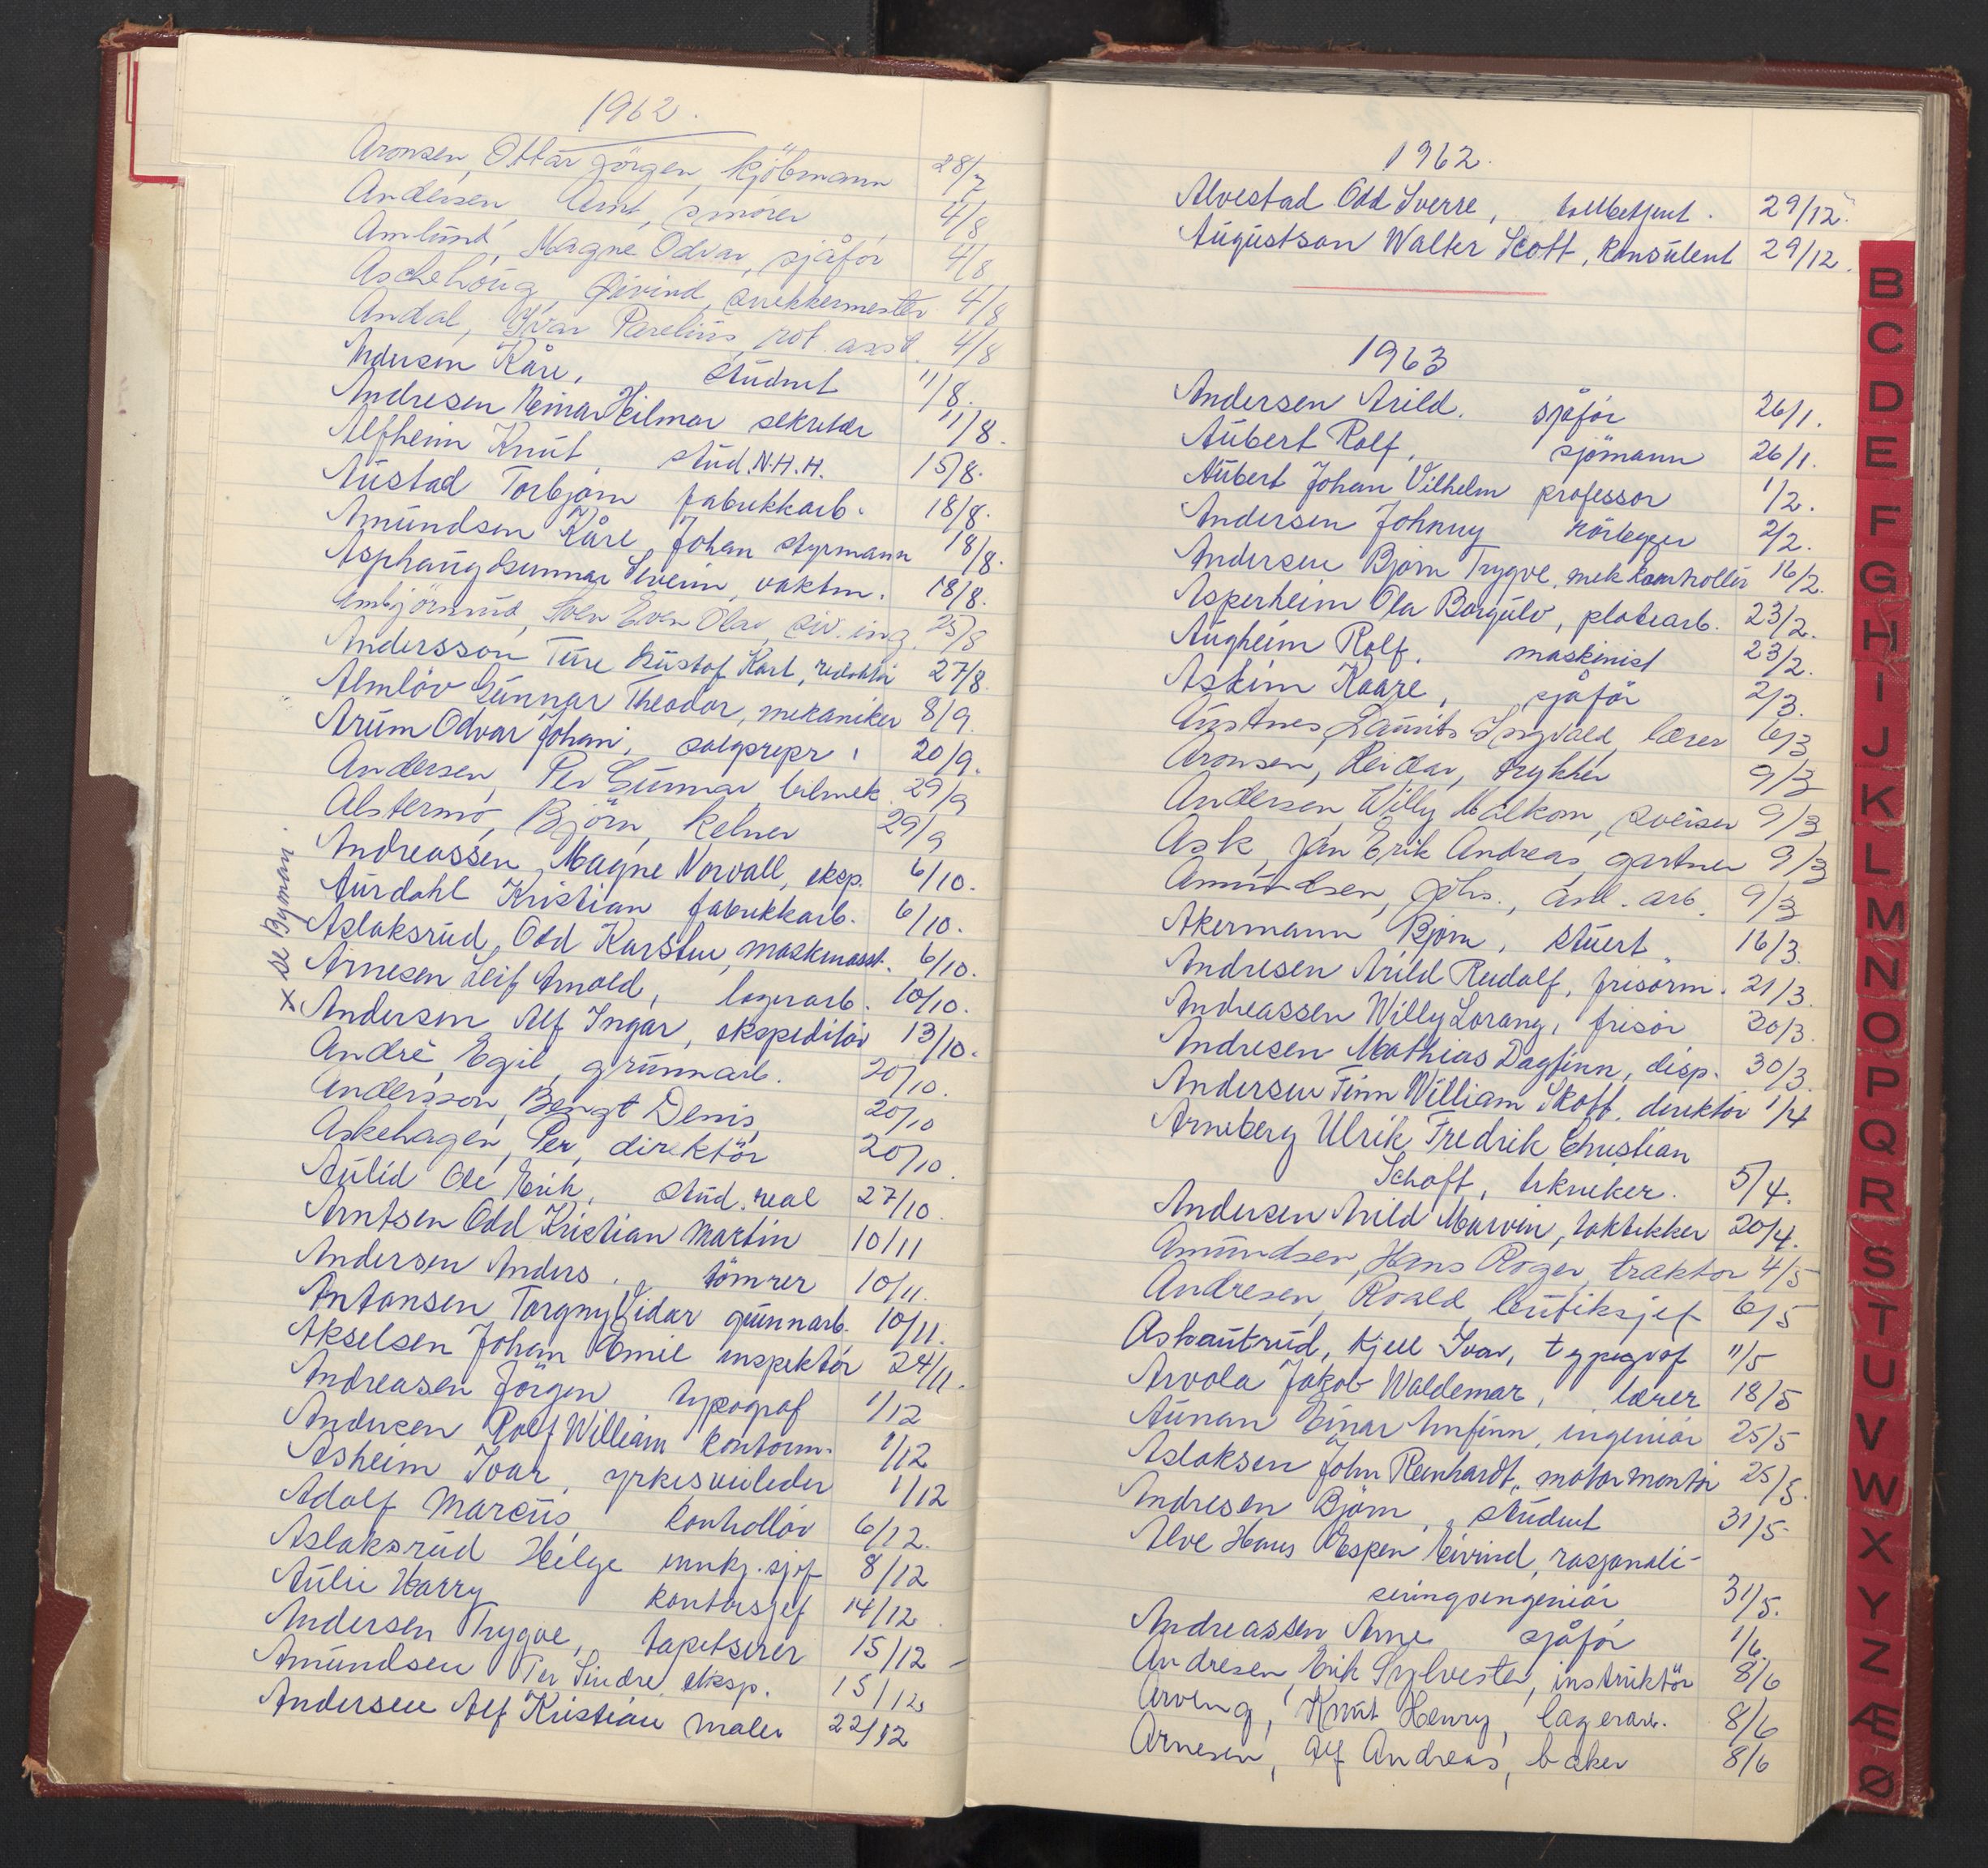 1962.
Aronsen, Ottar Jörgen, kjöbmann 28/7
Andersen, Arnt, snörer 4/8
Amlund, Magne Odvar, sjåför 4/8
Aschehoug Øivind, snekkermester 4/8
Andal, Ivar Parelius, rot. asst. 4/8
Andersen Kåre, student 11/8.
Andresen Einar Hilmar sekretær 11/8.
Alfheim Knut, stud. N.H.H. 15/8.
Austad Torbjørn fabrikkarb. 18/8.
Amundsen Kåre Johan styrmann 18/8.
Asphaug Gunnar Severin, vaktm. 18/8.
Ambjörnrud, Sven Even Olav, siv. ing. 25/8
Andersson Ture Gustof Karl, redaktör 27/8.
Almlöv Gunnar Theodor, mekaniker 8/9.
Arum Odvar Johan, salgsrepr. 20/9.
Andersen, Per Gunnar bilmek. 29/9
Alstermo, Björn, kelner 29/9
Andreassen Magne Norvall, eksp. 6/10.
Aurdahl Kristian fabrikkarb. 6/10.
Aslaksrud, Odd Karsten, maskinasst. 6/10.
Arnesen Leif Arnold, lagerarb. 10/10.
x se Byman. Andersen Alf Ingar, ekspeditör 13/10.
André, Egil, grunnarb. 20/10.
Andersson, Bengt Denis, 20/10
Askehagen, Per, direktör 20/10.
Aulid Ole Erik, stud. real 27/10.
Arntsen Odd Kristian Martin 10/11
Andersen Anders, tömrer 10/11.
Antonsen Torgny Vidar grunnarb. 10/11.
Akselsen Johan Emil inspektör 24/11.
Andreasen Jörgen typograf 1/12
Andersen Rolf William kontorm. 1/12
Asheim Ivar, yrkesveileder 1/12
Adolf Marcus kontrollör 6/12.
Aslaksrud Helge innkj.sjef 8/12
Aulie Harry kontorsjef 14/12.
Andersen Trygve, tapetserer 15/12
Amundsen Per Sindre, eksp. 15/12
Andersen Alf Kristian maler 22/12
1962.
Alvestad Odd Sverre, tollbetjent. 29/12.
Augustson Walter Scott, konsulent 29/12.
1963
Andersen Arild. sjåför 26/1.
Aubert Rolf, sjömann 26/1.
Aubert Johan Vilhelm professor 1/2.
Andersen Johnny rörlegger 2/2.
Andersen Bjørn Trygve, mek. kontrollör 16/2.
Asperheim Ola Borgulv, platearb. 23/2.
Augheim Rolf, maskinist 23/2.
Askim Kaare, sjåför 2/3.
Austnes, Laurits Ingvald, lærer 6/3
Aronsen, Reidar, trykker 9/3
Andersen Willy Malkom, sveiser 9/3
Ask, Jan Erik Andreas, gartner 9/3
Amundsen, Johs., anl. arb. 9/3
Akermann Bjørn, stuert 16/3.
Andresen Arild Rudolf, frisörm. 21/3.
Andreassen Willy Lorang, frisör 30/3.
Andresen Mathias Dagfinn, disp. 30/3.
Andersen Finn William Skott, direktör 1/4
Arneberg Ulrik Fredrik Christian
Schøft, tekniker. 5/4.
Andersen Arild Marvin, taktekker 20/4.
Amundsen, Hans Roger, traktor 4/5
Andresen, Roald, butiksjef 6/5
Askautrud, Kjell Ivar, typograf 11/5
Arvola Jakob Waldemar, lærer 18/5
Aunan Einar Arnfinn, ingeniör 25/5
Aslaksen John Reinhardt, motormontör 25/5.
Andresen Bjørn, student 31/5.
Alve Hans Espen Eivind, rasjonali-
seringsingeniör 31/5.
Andreassen Arne sjåför 1/6.
Andresen, Erik Sylvester, instruktör 8/6
Arveng, Knut Henry, lagerarb. 8/6
Arnesen, Alf Andreas, baker 8/6
B
C
D
E
F
G
H
I
J
K
L
M
N
O
P
Q
R
S
T
U
V
W
X
Y
Z
Æ
Ø